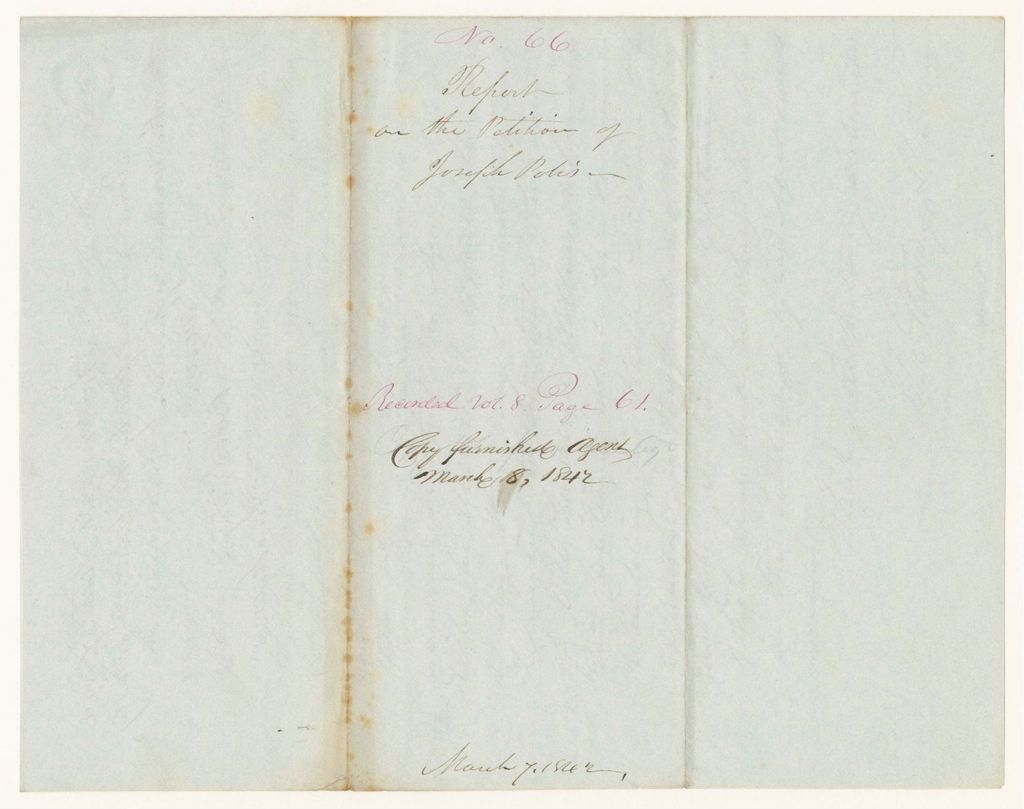 No. 66
Report
on the Petition of
Joseph Polis
Recorded Vol. 8 Page 61.
Copy furnished Agent
March 8, 1842
March 7. 1842.